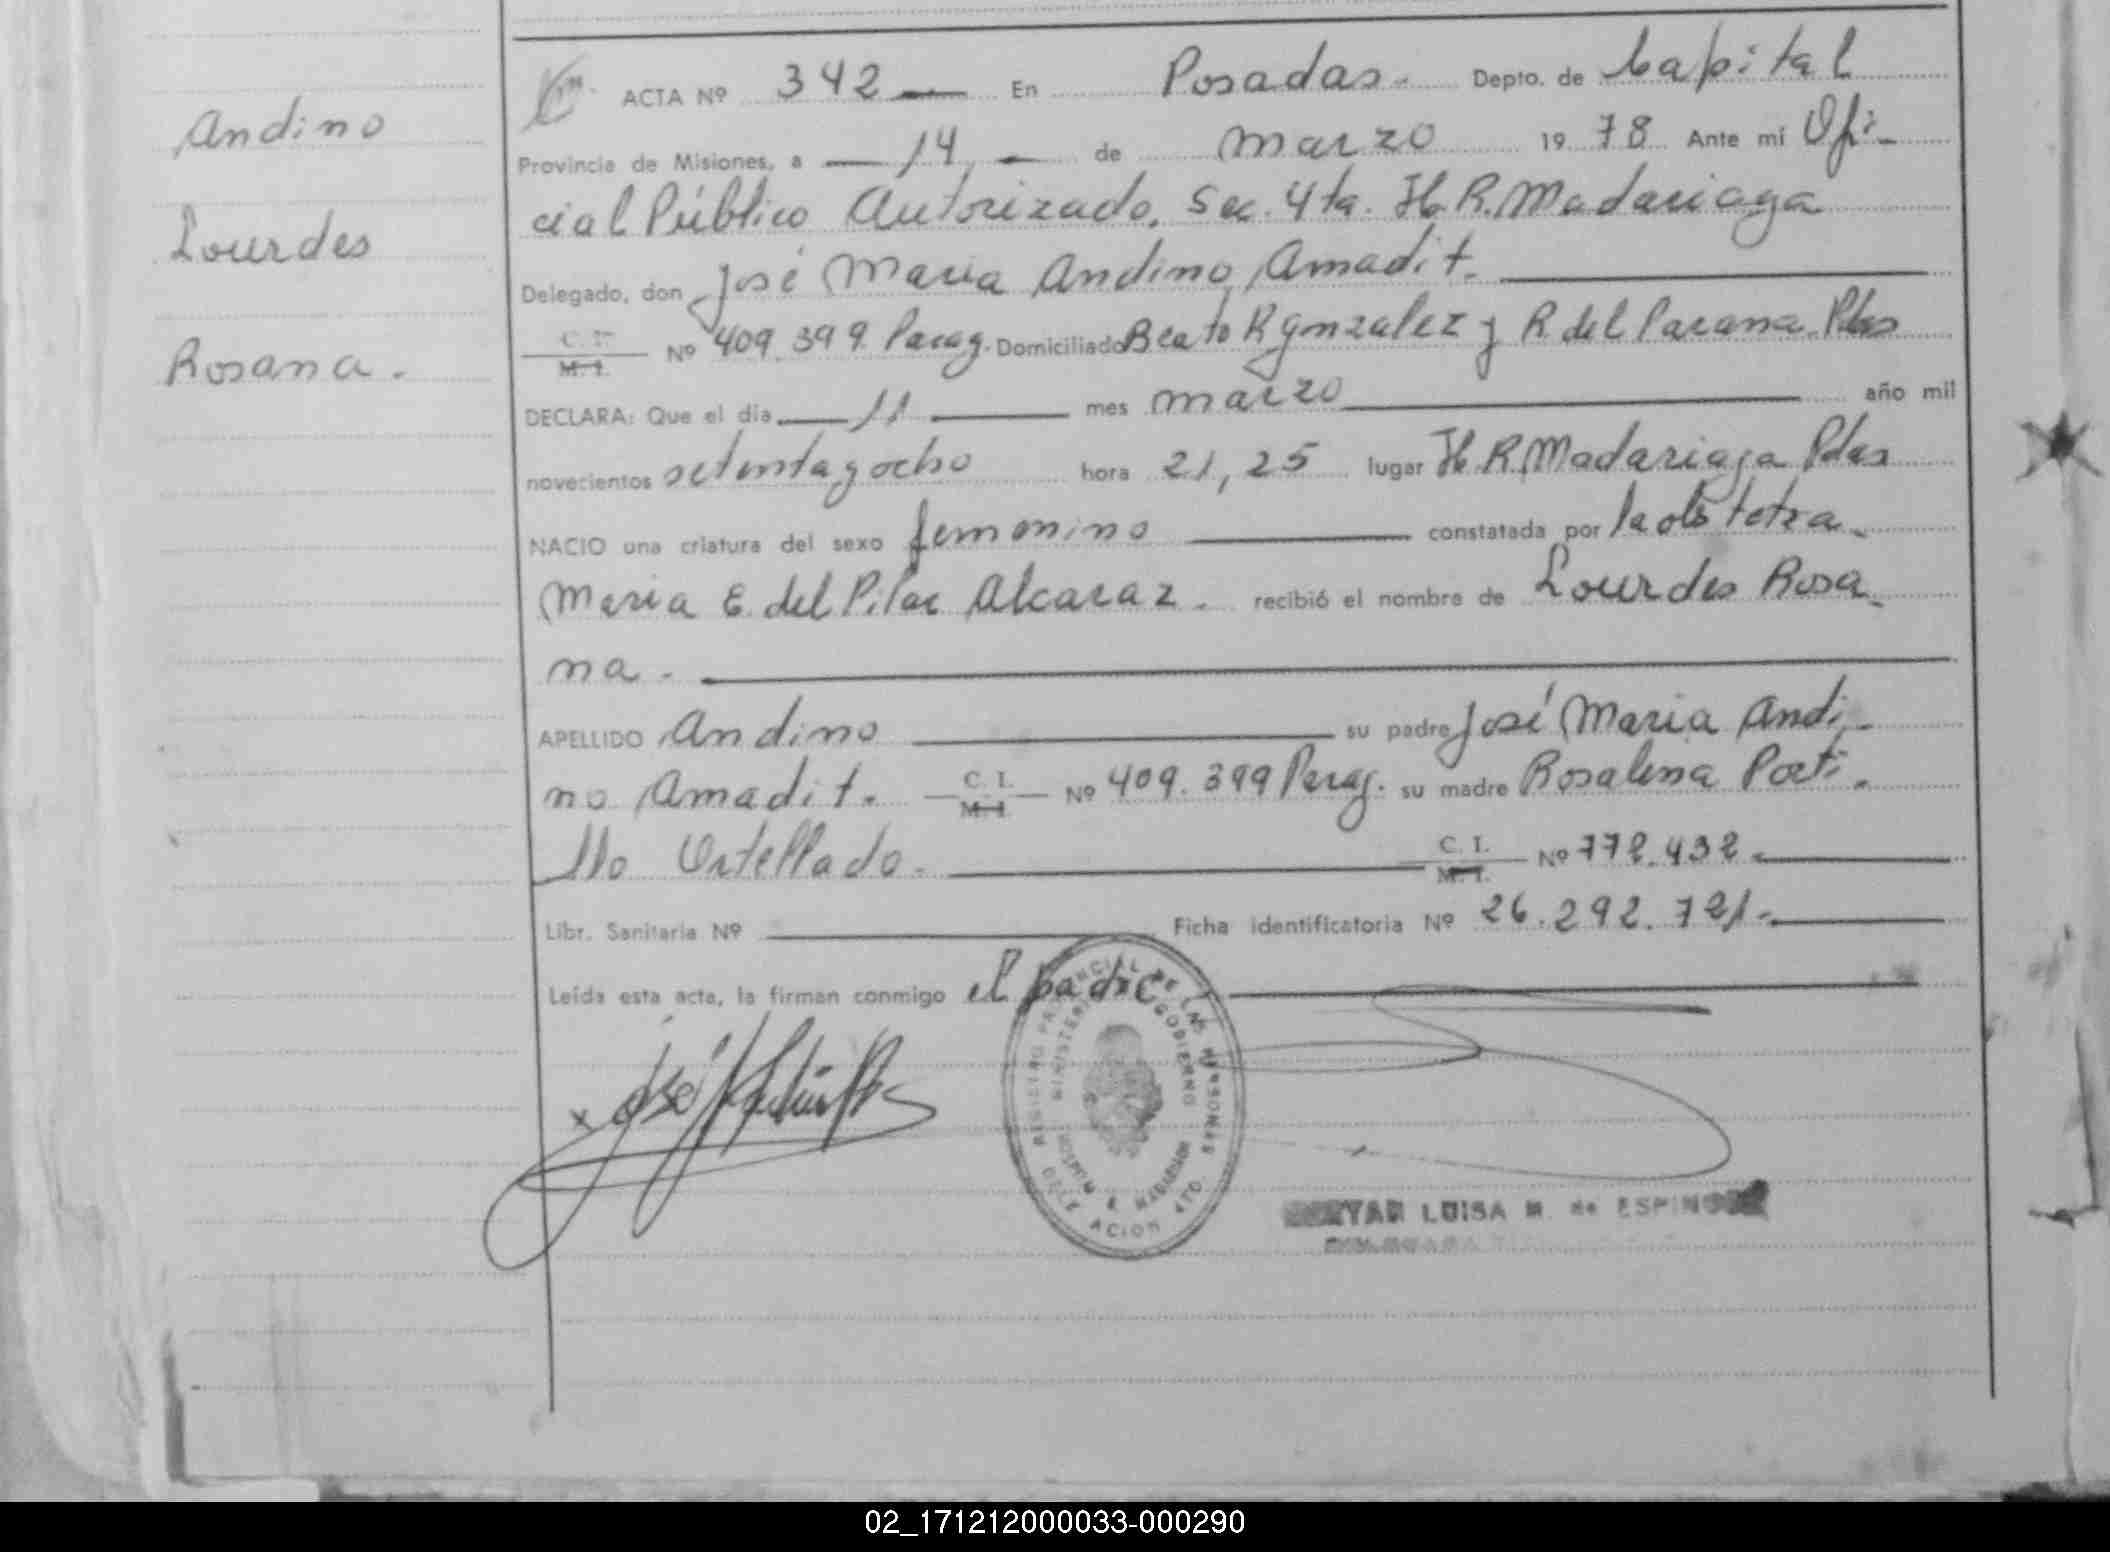 Andino
Lourdes
Rosana.
ACTA Nº 342 En Posadas. Depto. de Capital
Provincia de Misiones, a 14 de marzo 1978 Ante mí Ofi-
cial Público Autorizado. Sec. 4ta. H. R. Madariaga
Delegado, don José Maria Andino Amadit.
C. I.
M. I. Nº 409.399 Parag. Domiciliado Beato R Gonzalez y R. del Parana. Pdas
DECLARA: Que el día 11 mes marzo año mil
novecientos setenta y ocho hora 21,25 lugar H. R. Madariaga Pdas
NACIO una criatura del sexo femenino constatada por la obstetra
Maria E. del Pilar Alcaraz. recibió el nombre de Lourdes Rosa-
na.
APELLIDO Andino su padre José Maria Andi-
no Amadit. C. I. M. I. Nº 409.399 Parag. su madre Rosalina Porti-
llo Ortellado. C. I. M. I. Nº 772.432.
Libr. Sanitaria Nº Ficha identificatoria Nº 26.292.721.
Leída esta acta, la firman conmigo el padre
x José
REGISTRO PROVINCIAL DE LAS PERSONAS
MINISTERIO GOBIERNO
HOSPITAL R. MADARIAGA
DELEGACION 4TO
LUISA M. de ESPINOZA
02_171212000033-000290